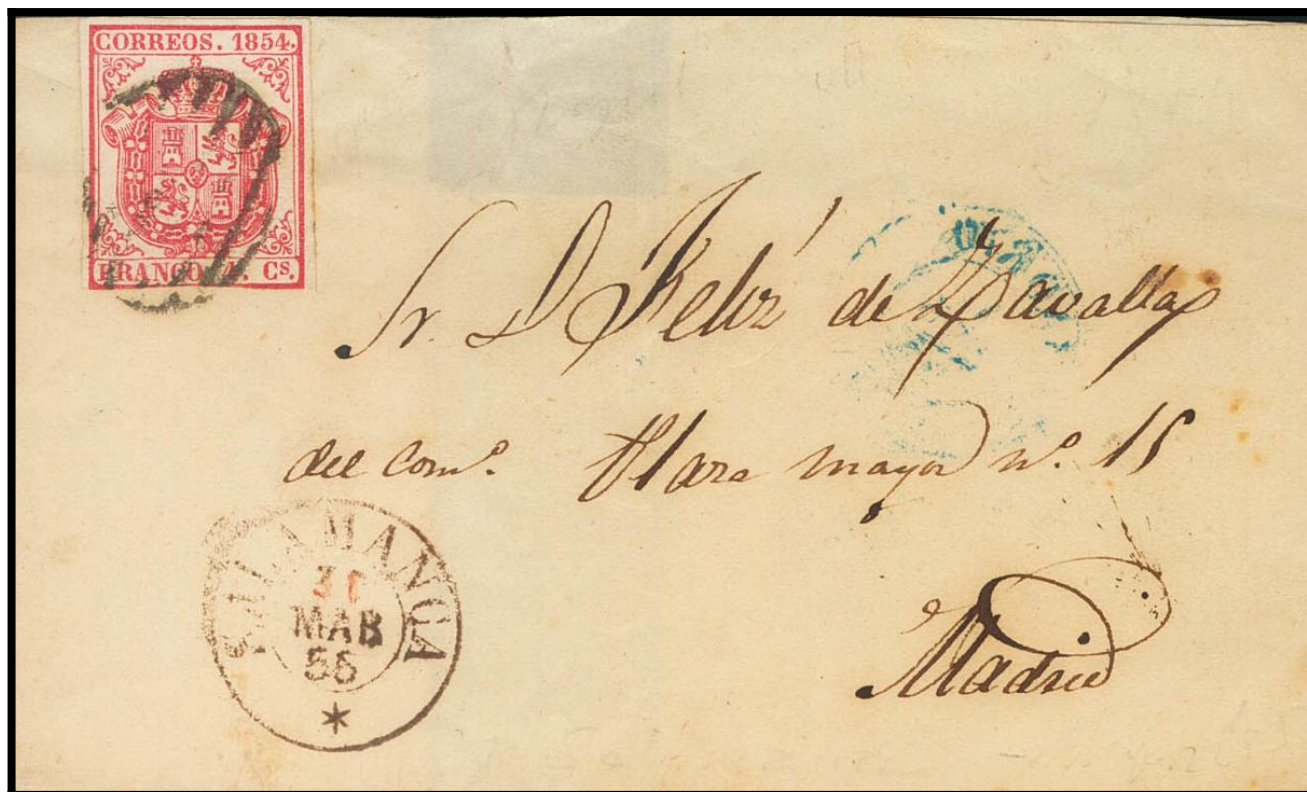 CORREOS. 1854.
FRANCO. 4. Cs.
Sr. D Feliz de Zavalla
del Com.º Plaza mayor nº. 15
SALAMANCA
31
MAR
55
Madrid